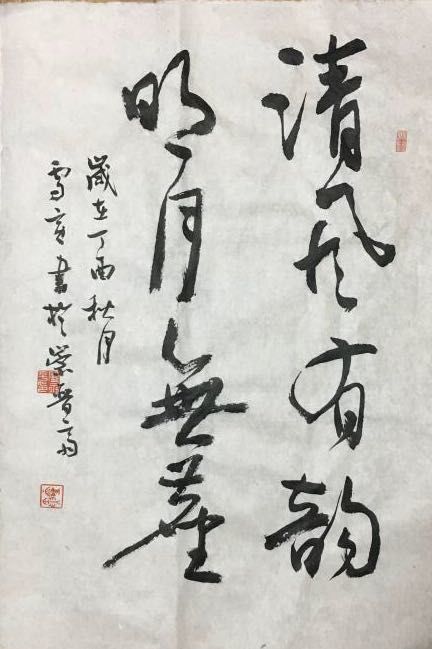 清風有韵
明月無塵
歲在丁酉秋月
雪書於崇晉齋